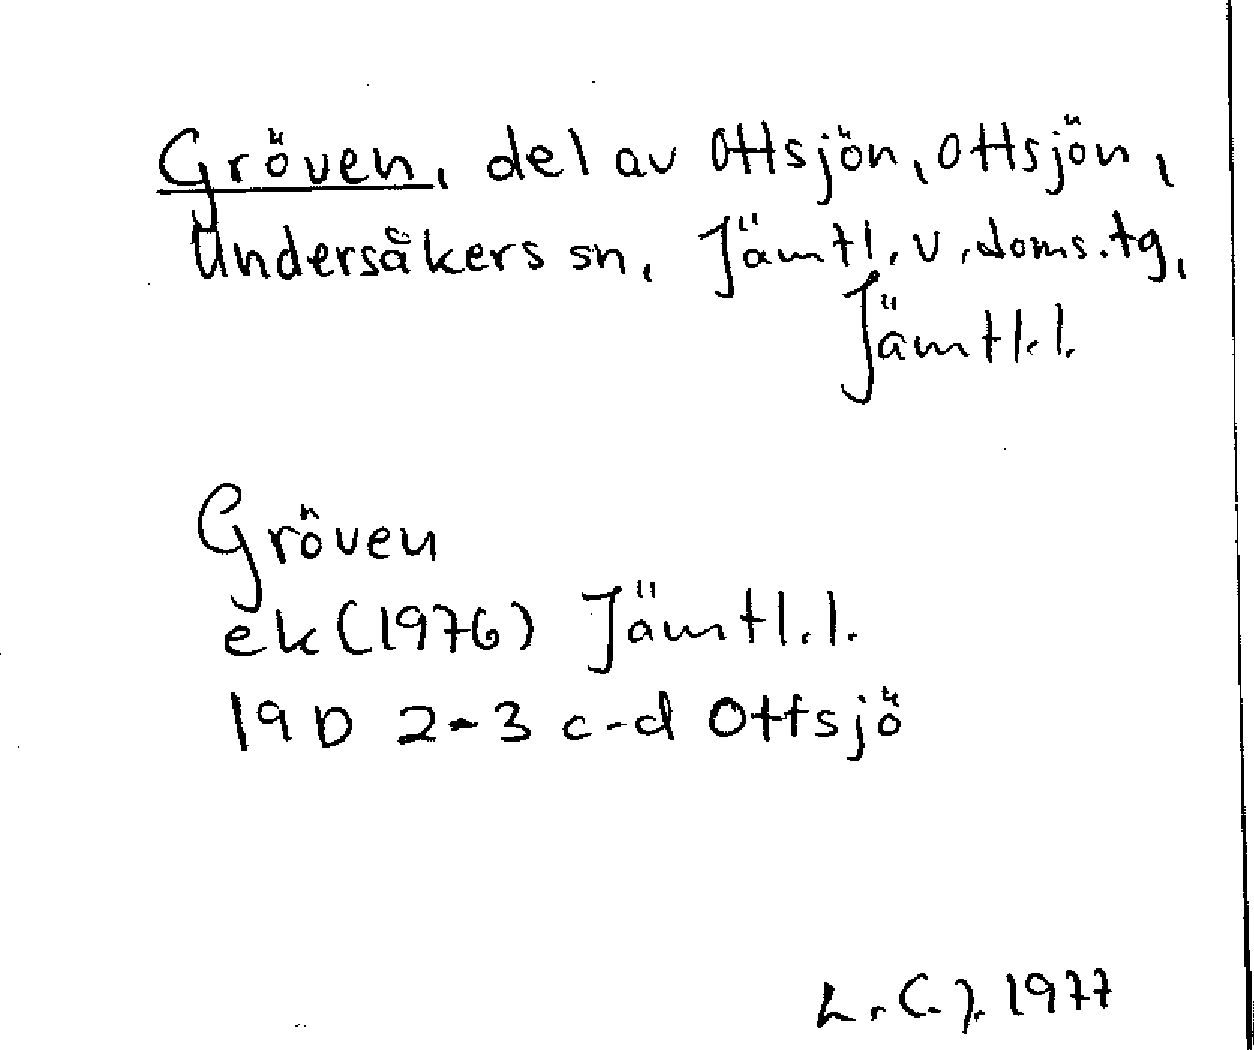 Gröven, del av Ottsjön, Ottsjön,
Undersåkers sn, Jämtl. v. doms. tg,
Jämtl. l.
Gröven
ek (1976) Jämtl. l.
19 D 2-3 c-d Ottsjö
L. C. J. 1977